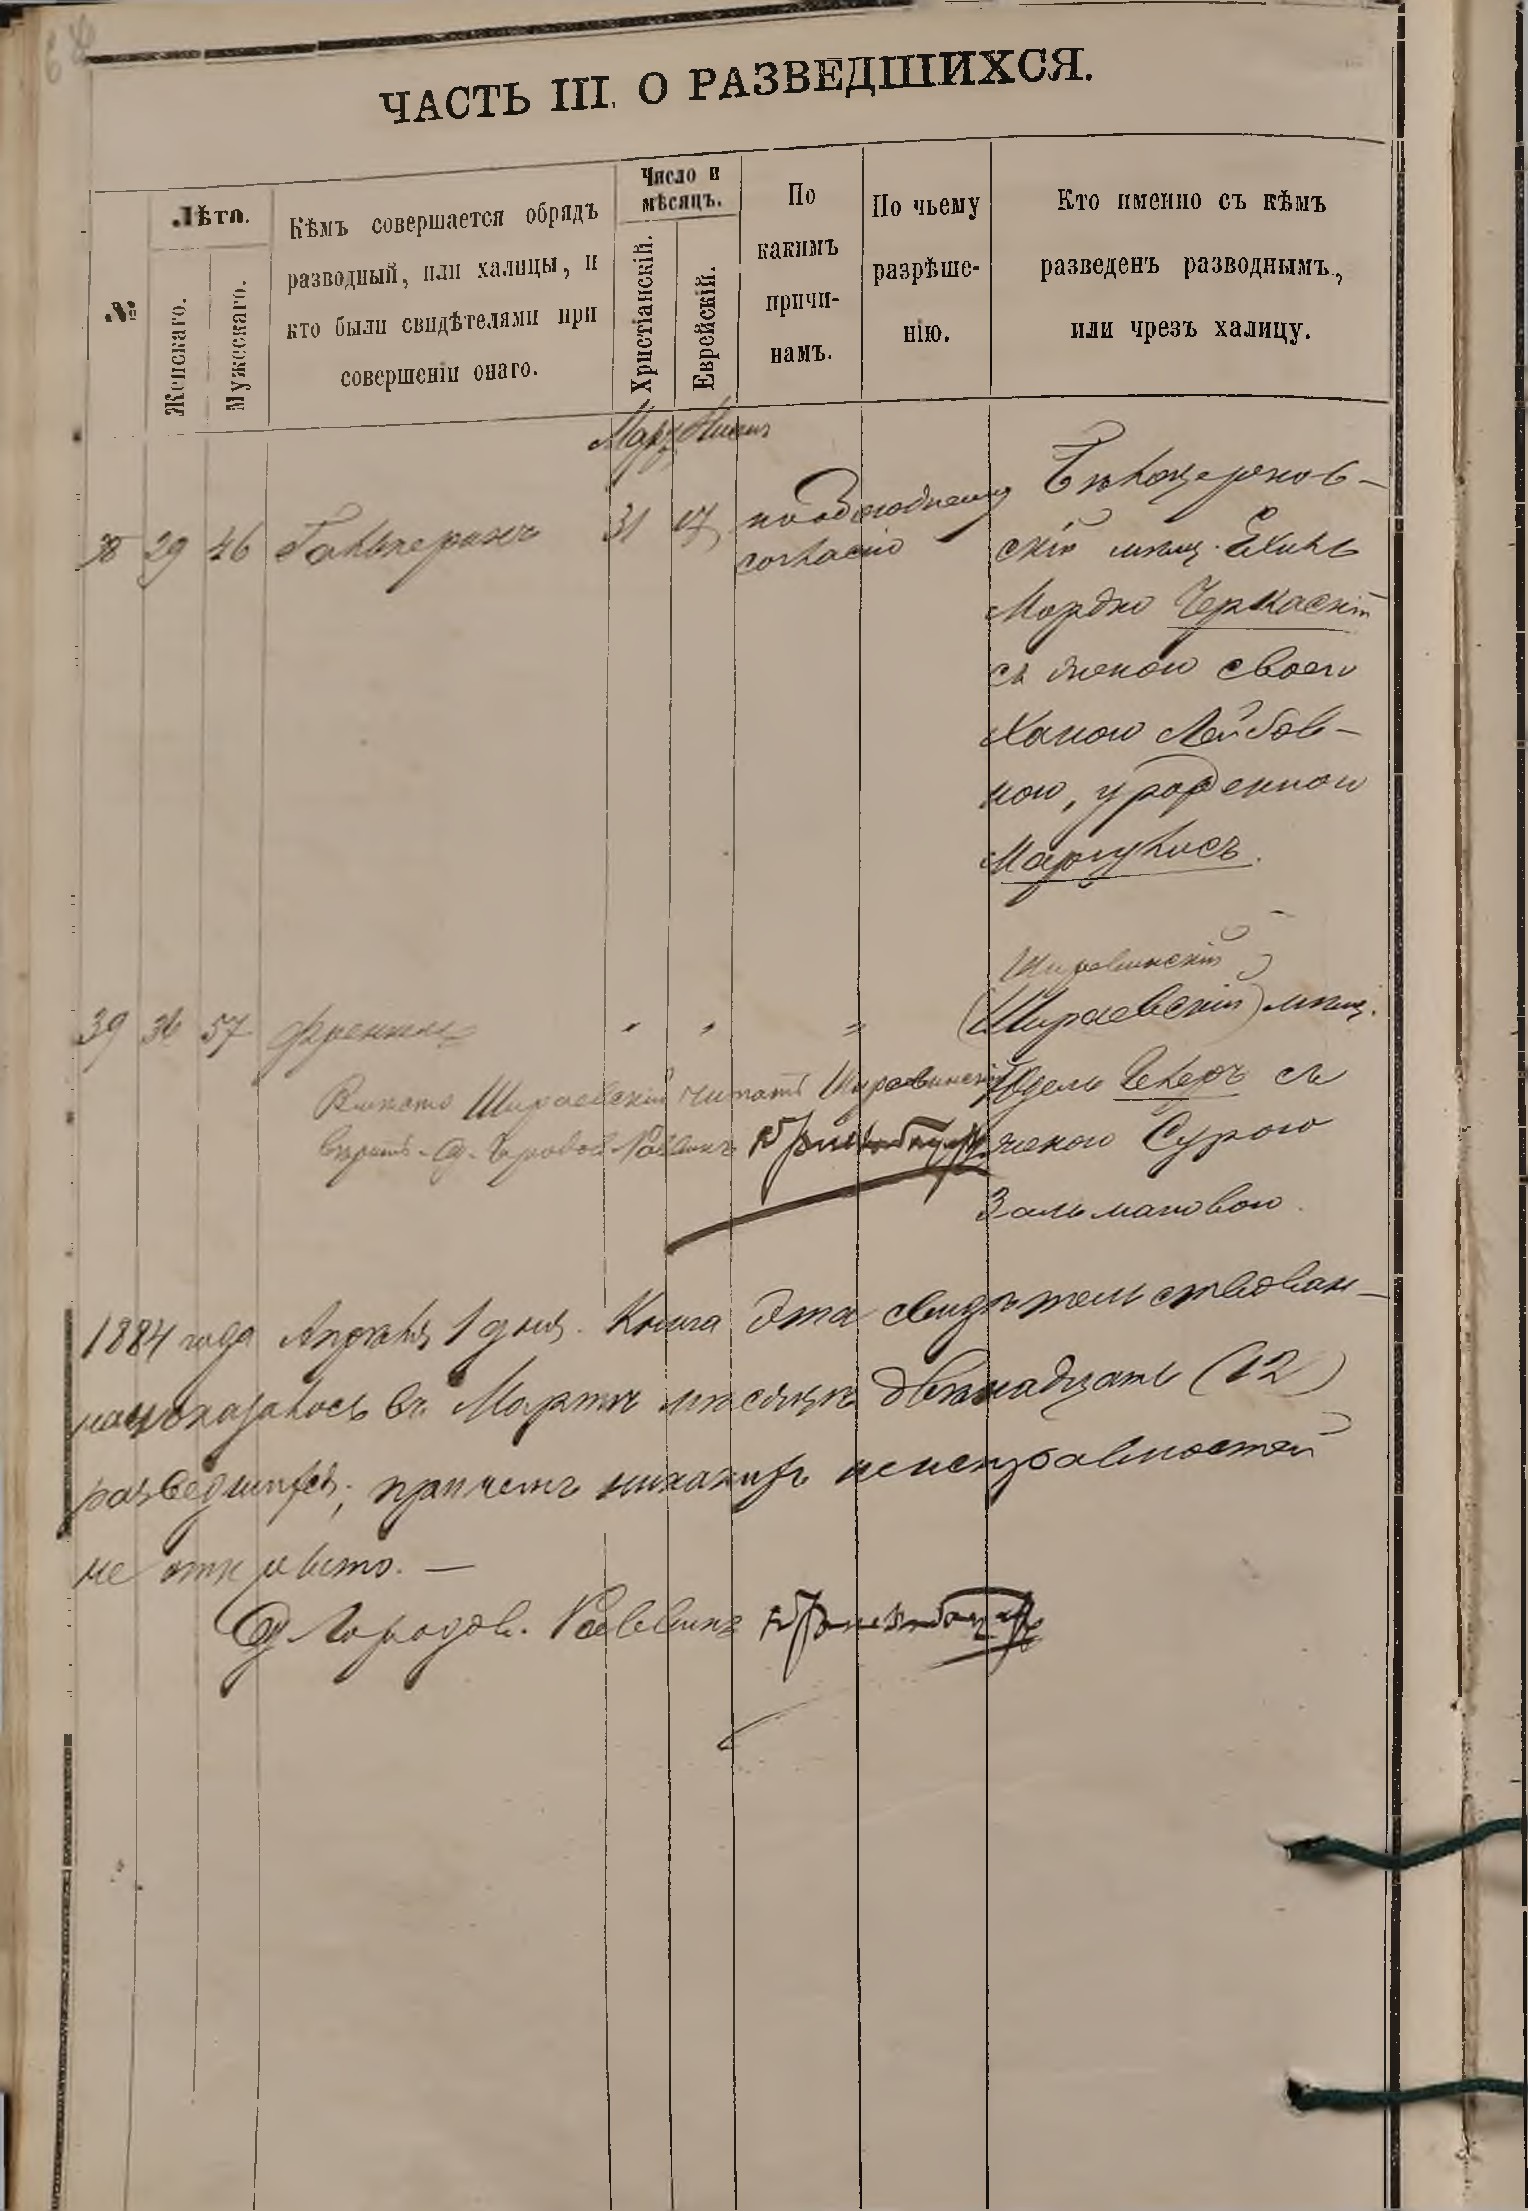 ЧАСТЬ III. О РАЗВЕДШИХСЯ.
№
Лѣта.
Женскаго.
Мужескаго.
Кѣмъ совершается обрядъ
разводный, или халицы, и
кто были свидѣтелями при
совершеніи онаго.
Число и
мѣсяцъ.
Христіанскій.
Еврейскій.
По
какимъ
причи-
намъ.
По чьему
разрѣше-
нію.
Кто именно съ кѣмъ
разведенъ разводнымъ,
или чрезъ халицу.
Мартъ Нисанъ
38 29 46 Гальперинъ 31 17 по обоюдному
согласію
Бѣлоцерков-
скій мѣщ. Ехиль
Мордко Черкаскій
съ женою своею
Ханою Лейбов-
ною, урожденною
Маргулисъ.
Ширвинскій
39 36 57 Френкель " " " (Шираевскій) мѣщ.
Юдель Чекеръ съ
женою Сурою
Залмановою.
Вмѣсто Шираевскій читать Ширвинскій
вѣрить. Д. Городов. Раввинъ
1884 года Апрѣля 1 дня. Книга эта свидѣтельствован-
на, оказалось въ Мартѣ мѣсяцѣ двѣнадцать (12)
разведшихся, причемъ никакихъ неисправностей
не открыто. —
Д Городов. Раввинъ